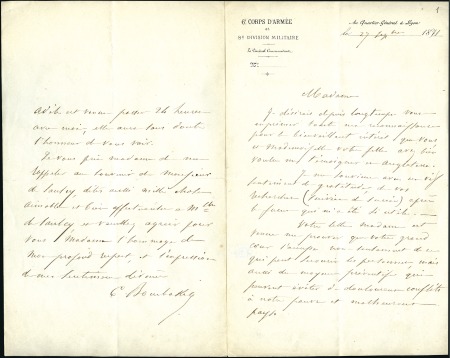 1
6E CORPS D'ARMÉE
ET
8E DIVISION MILITAIRE
Le Général Commandant
Au Quartier Général à Lyon
le 27 1871
Madame
Je désirais depuis longtemps vous
exprimer toute ma reconnaissance
pour le bienveillant intérêt que vous
et mademoiselle votre fille avez bien
voulu me témoigner en angleterre.
Je me souviens avec un vif
sentiment de gratitude, de vos
recherches
faveur qui m'a été si utile.
Votre lettre madame est
venue me prouver que votre grand
cœur s'occupe non seulement de ce
qui peut secourir les personnes, mais
aussi des moyens préventifs qui
peuvent éviter de douloureux conflits
à notre pauvre et malheureux
pays.
est venue passer 24 heures
avec moi, elle aura sans doute
l'honneur de vous voir.
Je vous prie madame de me
rappeler au souvenir de Monsieur
de dites mille choses
aimables et bien affectueuses à Mlle
de et veuillez agréer pour
vous Madame l'hommage de
mon profond respect, et l'expression
de mes sentiments dévoués
C. Bourbaki